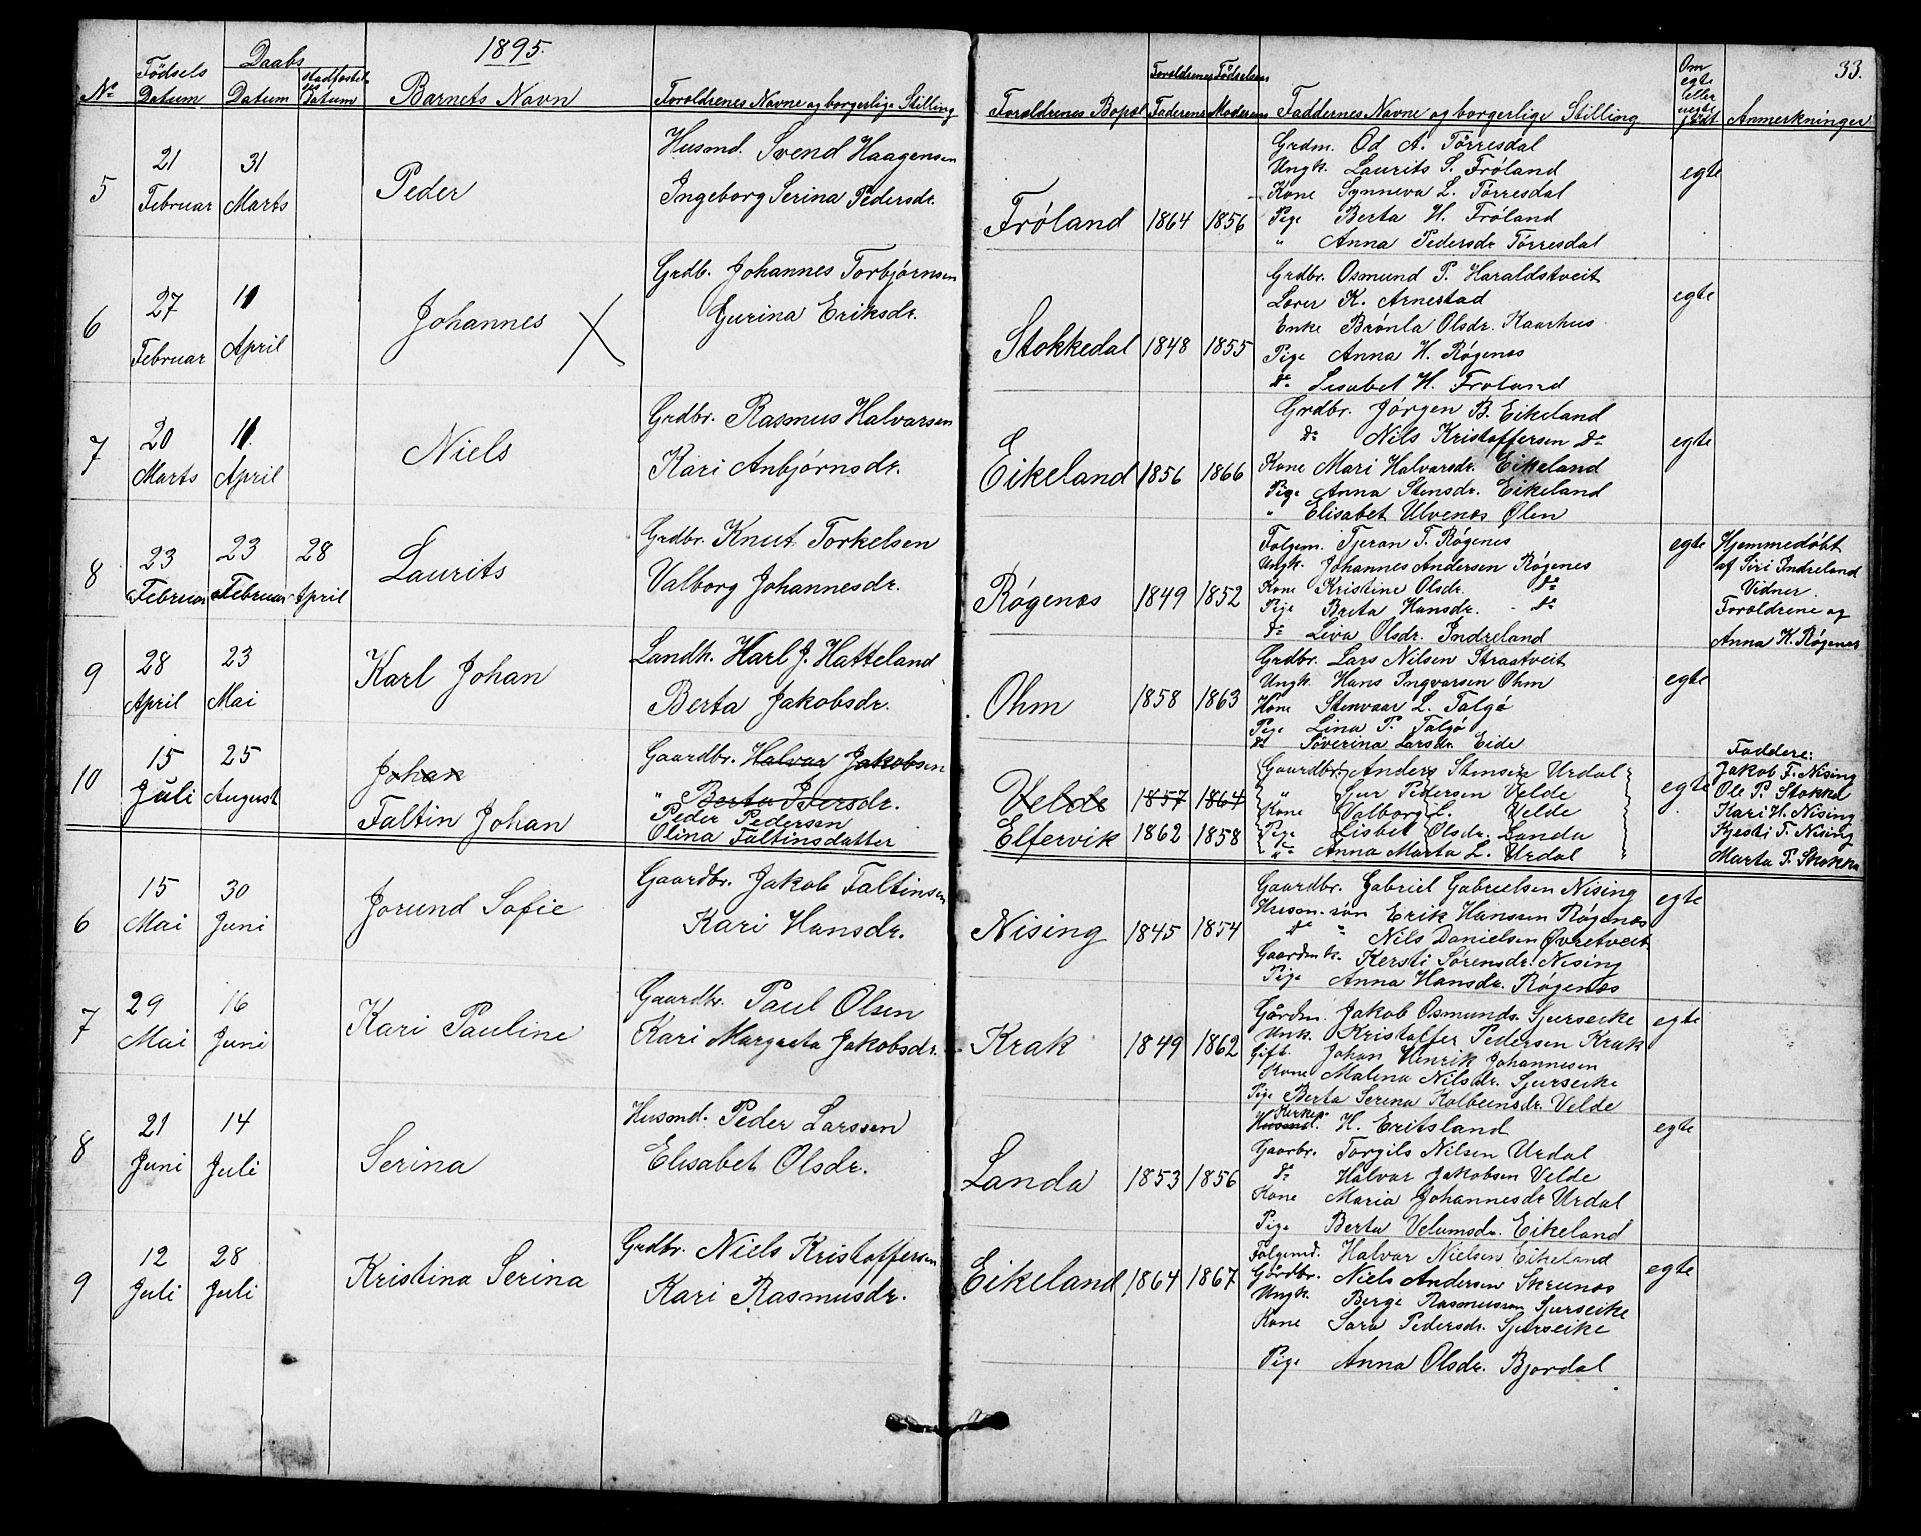 1895.
33.
No Fødsels Datum Daabs Datum stadfæstelses Datum Barnets Navn Forældrenes Navne og borgerlige Stilling
Forældrenes Bopæl Forældrenes Fødselsaar Faderens Moderens Faddernes Navne og borgerlige Stilling Om egte eller uegte født Anmerkninger
5 21 Februar 31 Marts Peder
Husmd. Svend Haagensen
Ingeborg Serina Pedersdr.
Frøland 1864 1856
Grdm. Od A. Tørresdal
Ungk. Laurits S. Frøland
Kone Synneva L. Tørresdal
Pige Berta H. Frøland
" Anna Pedersdr Tørresdal
egte
6 27 Februar 11 April Johannes X
Grdb. Johannes Torbjørnsen
Gurina Eriksdr.
Stokkedal 1848 1855
Grdbr. Osmund P. Haraldstveit
Lærer K. Arnestad
Enke Brønla Olsdr. Kaarhus
Pige Anna H. Røgenæs
do Lisabet H. Frøland
egte
7 20 Marts 11. April Niels
Grdbr. Rasmus Halvarsen
Kari Anbjørnsdr.
Eikeland 1856 1866
Grdbr. Jørgen B. Eikeland
do Nils Kristoffersen do
Kone Mari Halvarsdr. Eikeland
Pige Anna Stensdr. Eikeland
" Elisabet Ulvenæs Ølen
egte
8 23 Februar 23 Februar 28 April Laurits
Grdbr. Knut Torkelsen
Valborg Johannesdr.
Røgenæs 1849 1852
Folgem. Tjeran T. Røgenes
Ungk. Johannes Andersen Røgenes
Kone Kristine Olsdr. do
Pige Breta Hansdr. do
do Liva Olsdr. Indreland
egte
Hjemmedøbt
af Siri Indreland
Vidner
Forældrene og
Anna K. Røgenes
9 28 April 23 Mai Karl Johan
Landh. Harl J. Hatteland
Berta Jakobsdr.
Ohm 1858 1863
Grdbr. Lars Nilsen Straatveit
Ungk. Hans Ingvarsen Ohm
Kone Stenvaar L. Talgø
Pige Lina P. Talgø
do Søverina Larsdr. Eide
egte
10 15 Juli 25 August Johan
Faltin Johan
Gaardbr. Halvar Jakobsen
" Berta Iversdr.
Peder Pedersen
Olina Faltinsdatter
Velde 1857 1864
Elfervik 1862 1858
Gaardbr. Anders Stensen Urdal
" Gur Pedersen Velde
Kone Valborg L. Velde
Pige Lisbet Olsdr. Landa
" Anna Marta L. Urdal
egte
Faddere:
Jakob F. Nising
Ole P. Stokka
Kari H. Nising
Kjesti F. Nising
Marta P. Stokka
6 15 Mai 30 Juni Jorund Sofie
Gaardbr. Jakob Faltinsen
Kari Hansdr.
Nising 1845 1854
Gaardbr. Gabriel Gabrielsen Nising
Husm.søn Erik Hanssen Røgenæs
do " Nils Danielsen Øvretveit
Gaardmk. Kersti Sørensdr. Nising
Pige Anna Hansdr. Røgenæs
egte
7 29 Mai 16 Juni Kari Pauline
Gaardbr. Paul Olsen
Kari Margreta Jakobsdr.
Krak 1849 1862
Gårdm. Jakob Osmunds. Sjurseike
Unk. Kristoffer Pedersen Krak
Gift. Johan Henrik Johannesen
Kone Malena Nilsdr. Sjurseike
Pige Berta Serina Kolbeinsdr. Velde
egte
8 21 Juni 14 Juli Serina
Husmd. Peder Larssen
Elisabet Olsdr.
Landa 1853 1856
Kirkes.
Husmd. H. Eritsland
Gaarbr. Torgils Nilsen Urdal
do Halvar Jakobsen Velde
Kone Maria Johannesdr Urdal
Pige Berta Velumsdr. Eikeland
egte
9 12 Juli 28 Juli Kristina Serina
Grdbr. Niels Kristoffersen
Kari Rasmusdr.
Eikeland 1864 1867
Folgemd. Halvar Nielsen Eikeland
Gårdbr. Niels Andersen Skrunæs
Ungk. Berge Rasmussen Sjurseike
Kone Sara Pedersdr. Sjurseike
Pige Anna Olsdr. Bjordal
egte